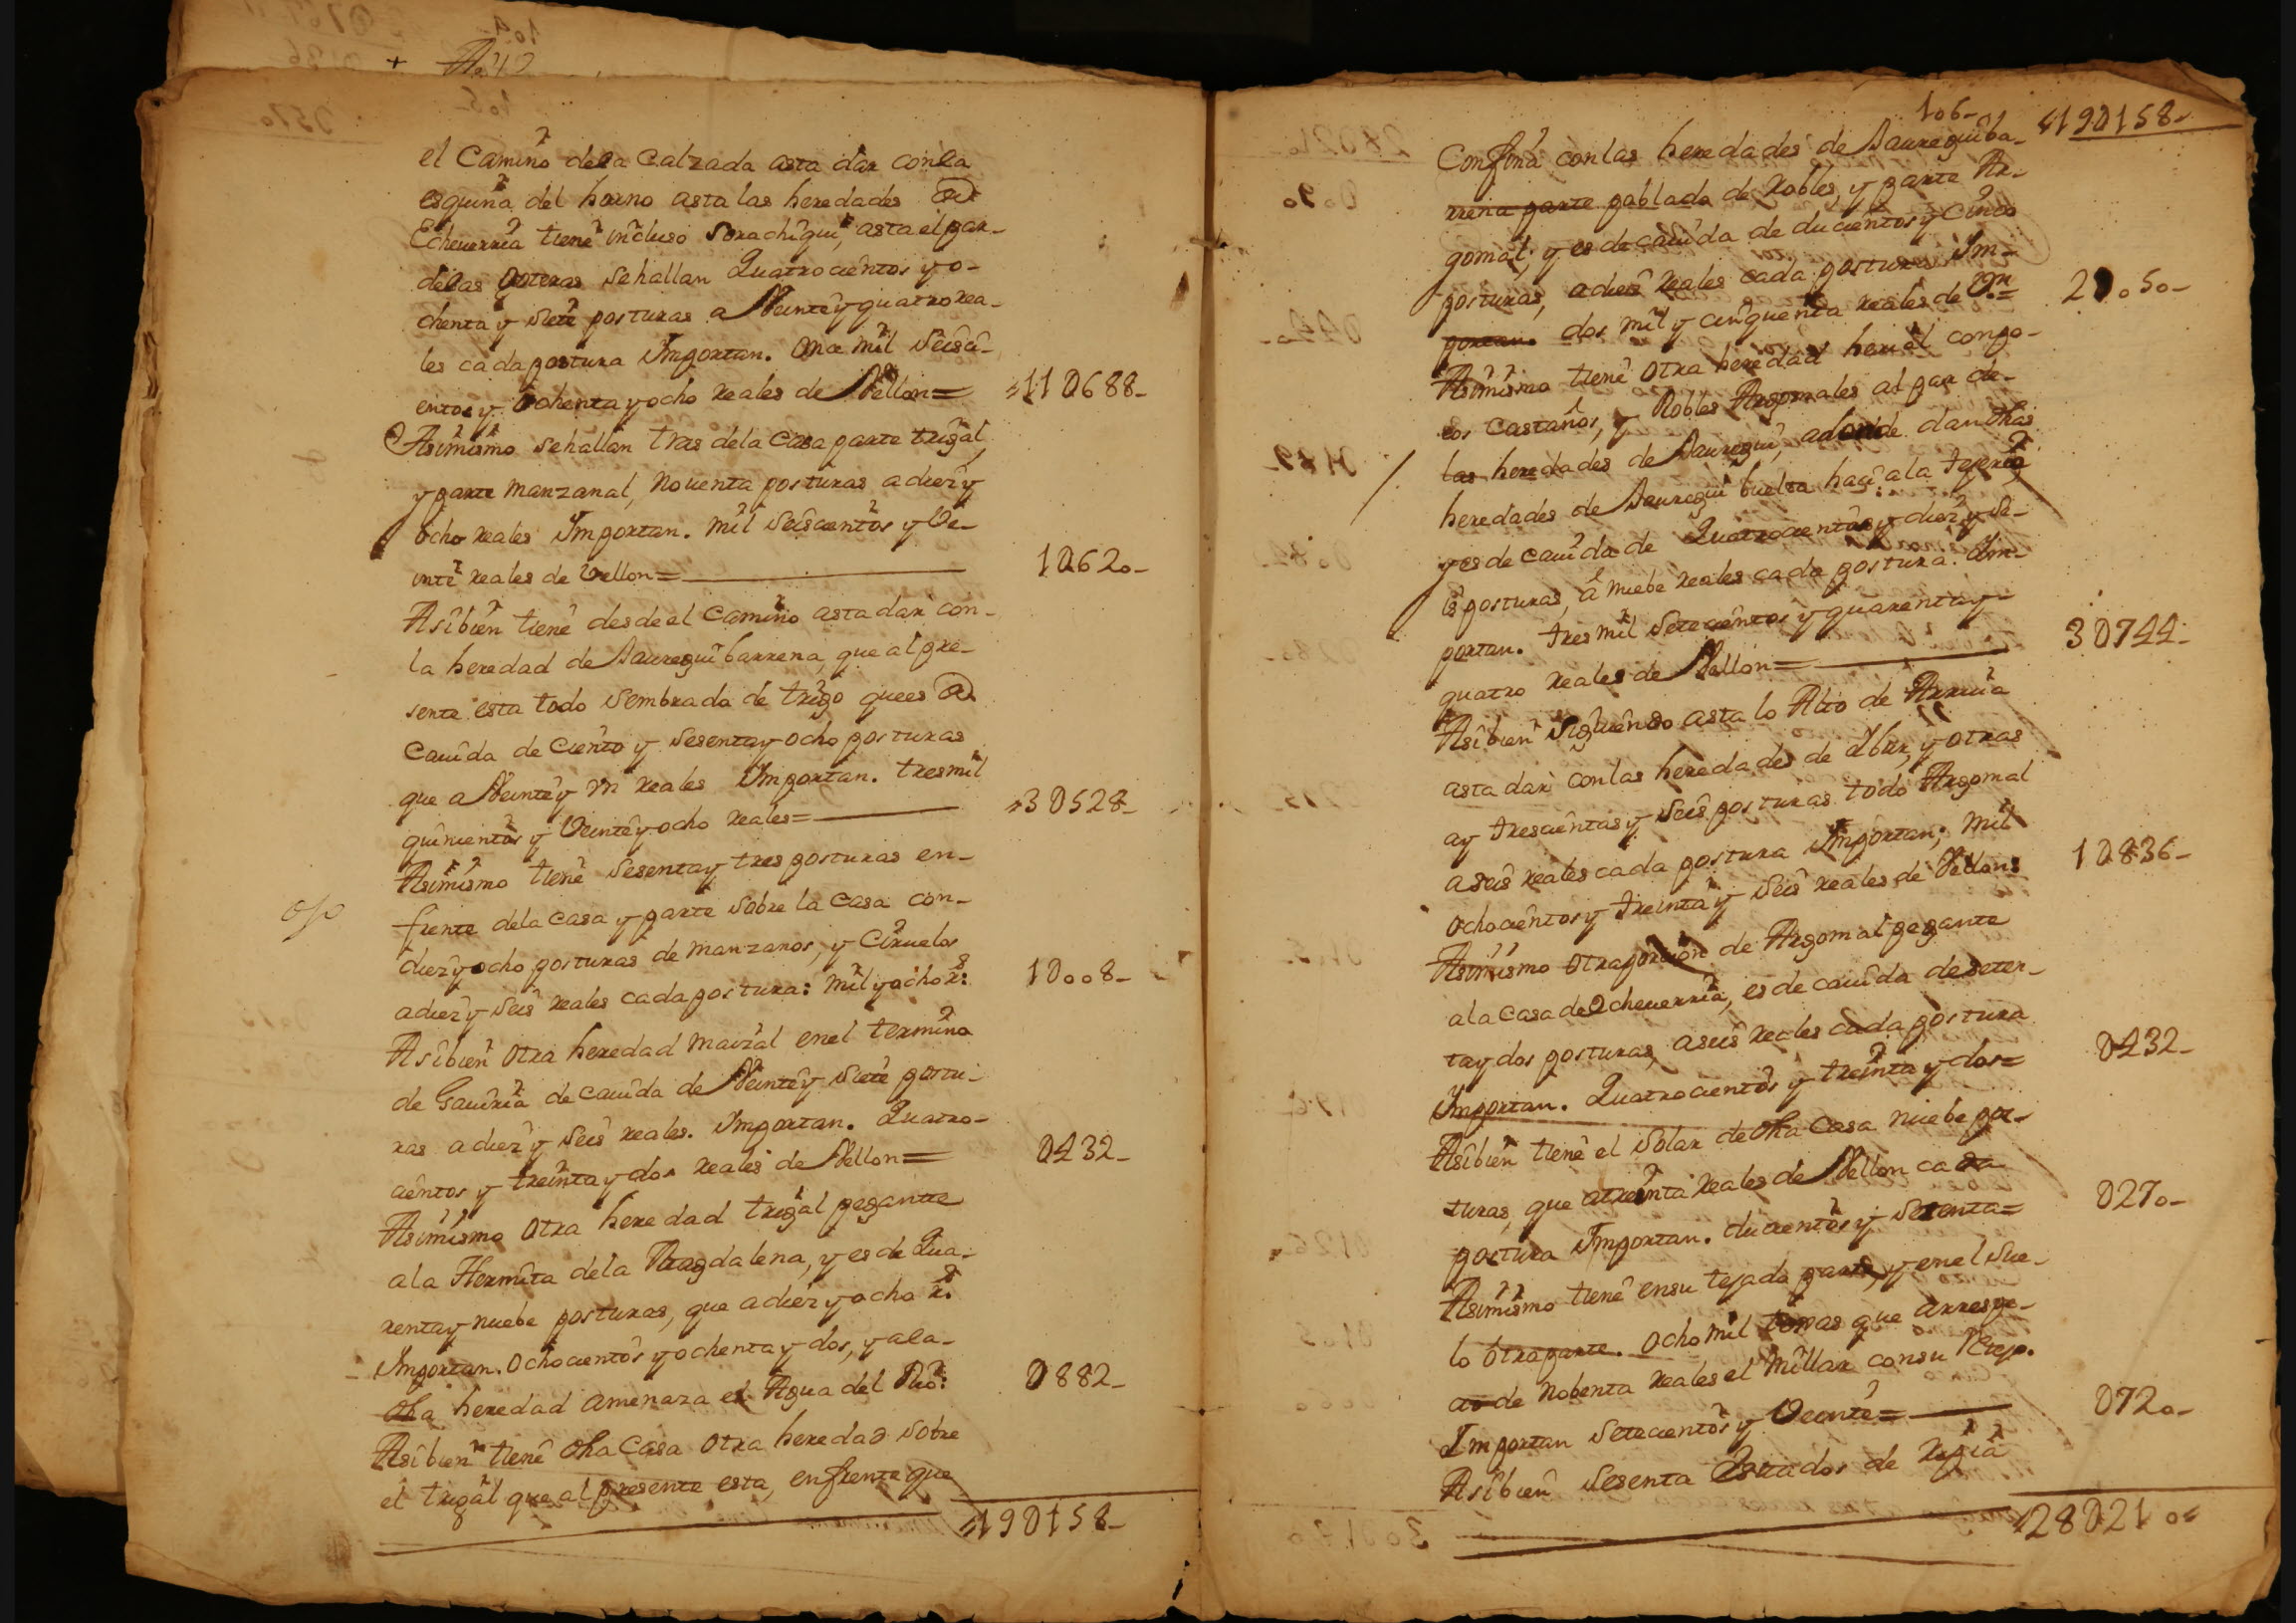 el Camino dela Calzada asta dar conla
esquina del horno asta las heredades de
Echeuerria tiene incluso Sorachigui, asta el par
delas Goteras sehallan Quatrocientos y o-
chenta y siete posturas a Veinte y quatro rea-
les cada postura Importan. Once mil seisci-
entos y Ochenta y ocho reales de Vellon= 11U688-
Asimismo sehallan tras dela Casa parte trigal,
y parte manzanal, Nouenta posturas a diez y
ocho reales Importan. mil seiscientos y Ve-
inte reales de Vellon= 1U620-
Asibien tiene desde el Camino asta dar con-
la heredad de Jaureguibarrena, que al pre-
sente esta todo sembrado de trigo que es de
Cauida de Ciento y sesenta y ocho posturas
que a Veinte y Vn reales Importan. tresmil
quinientos y Veinte y ocho reales= 3U528-
Asimismo tiene sesenta y tres posturas en-
frente dela Casa y parte sobre la Casa con-
diez y ocho posturas de manzanos, y Ciruelos
a diez y seis reales cada postura: mil y ocho rs: 1U008-
ojo
Asibien otra heredad maizal enel termino
de Gauiria de cauida de Veinte y siete postu-
ras a diez y seis reales. Importan. Quatro-
cientos y treinta y dos reales de Vellon= U432-
Asimismo otra heredad trigal pegante
ala Hermita dela Magdalena, y es de Qua-
renta y nuebe posturas, que a diez y ocho rs.
Importan. Ochocientos y ochenta y dos, y ala-
dha heredad amenaza el Agua del Rio: U882-
Asibien tiene dha Casa otra heredad sobre
el trigal que al presente esta, enfrente que
19U158-
106- 19U158-
Confina con las heredades de Jaureguiba-
rrena parte poblado de Robles, y parte Ar-
gomal, y es de cauida de ducientos y Cinco
posturas, a diez reales cada postura Im-
portan. dos mil y cinquenta reales de Vn= 2U050-
Asimismo tiene otra heredad heriel conpo-
cos Castaños, y Robles Argomales al par de-
las heredades de Jauregui, adonde dan dhas
heredades de Jauregui buelta hacia la tejeria,
y es de cauida de Quatrocientos y diez y se-
is posturas, a nuebe reales cada postura. Im-
portan. tres mil setecientos y quarenta y-
quatro reales de Vellon= 3U744-
Asibien siguiendo asta lo Alto de Arruia
asta dar con las heredades de Ibur, y otras
ay trescientas y seis posturas todo Argomal
a seis reales cada postura Importan; mil
ochocientos y treinta y seis reales de Vellon: 1U836-
Asimismo otra porcion de Argomal pegante
ala casa de Echeuerria, es de cauida de seten-
ta y dos posturas, a seis reales cada postura
Importan. Quatrocientos y treinta y dos= U432-
Asibien tiene el solar de dha Casa nuebe pos-
turas, que atreinta reales de Vellon cada
postura Importan. ducientos y setenta= U270-
Asimismo tiene ensu tejado parte, y enel sue-
lo otra parte. Ocho mil texas que arrespe-
cto de Nobenta reales el millar consu
Importan setecientos y Veinte= U720-
Asibien sesenta Estados de ripia
28U210-